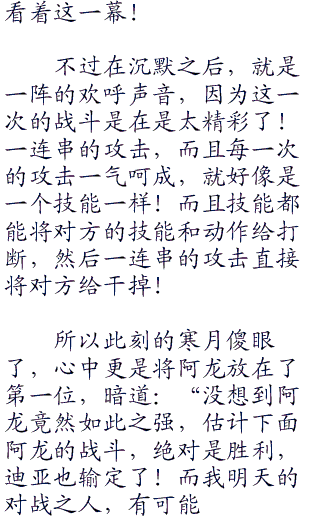 看着这一幕！
不过在沉默之后，就是
一阵的欢呼声音，因为这一
次的战斗是在是太精彩了！
一连串的攻击，而且每一次
的攻击一气呵成，就好像是
一个技能一样！而且技能都
能将对方的技能和动作给打
断，然后一连串的攻击直接
将对方给干掉！
所以此刻的寒月傻眼
了，心中更是将阿龙放在了
第一位，暗道：“没想到阿
龙竟然如此之强，估计下面
阿龙的战斗，绝对是胜利，
迪亚也输定了！而我明天的
对战之人，有可能